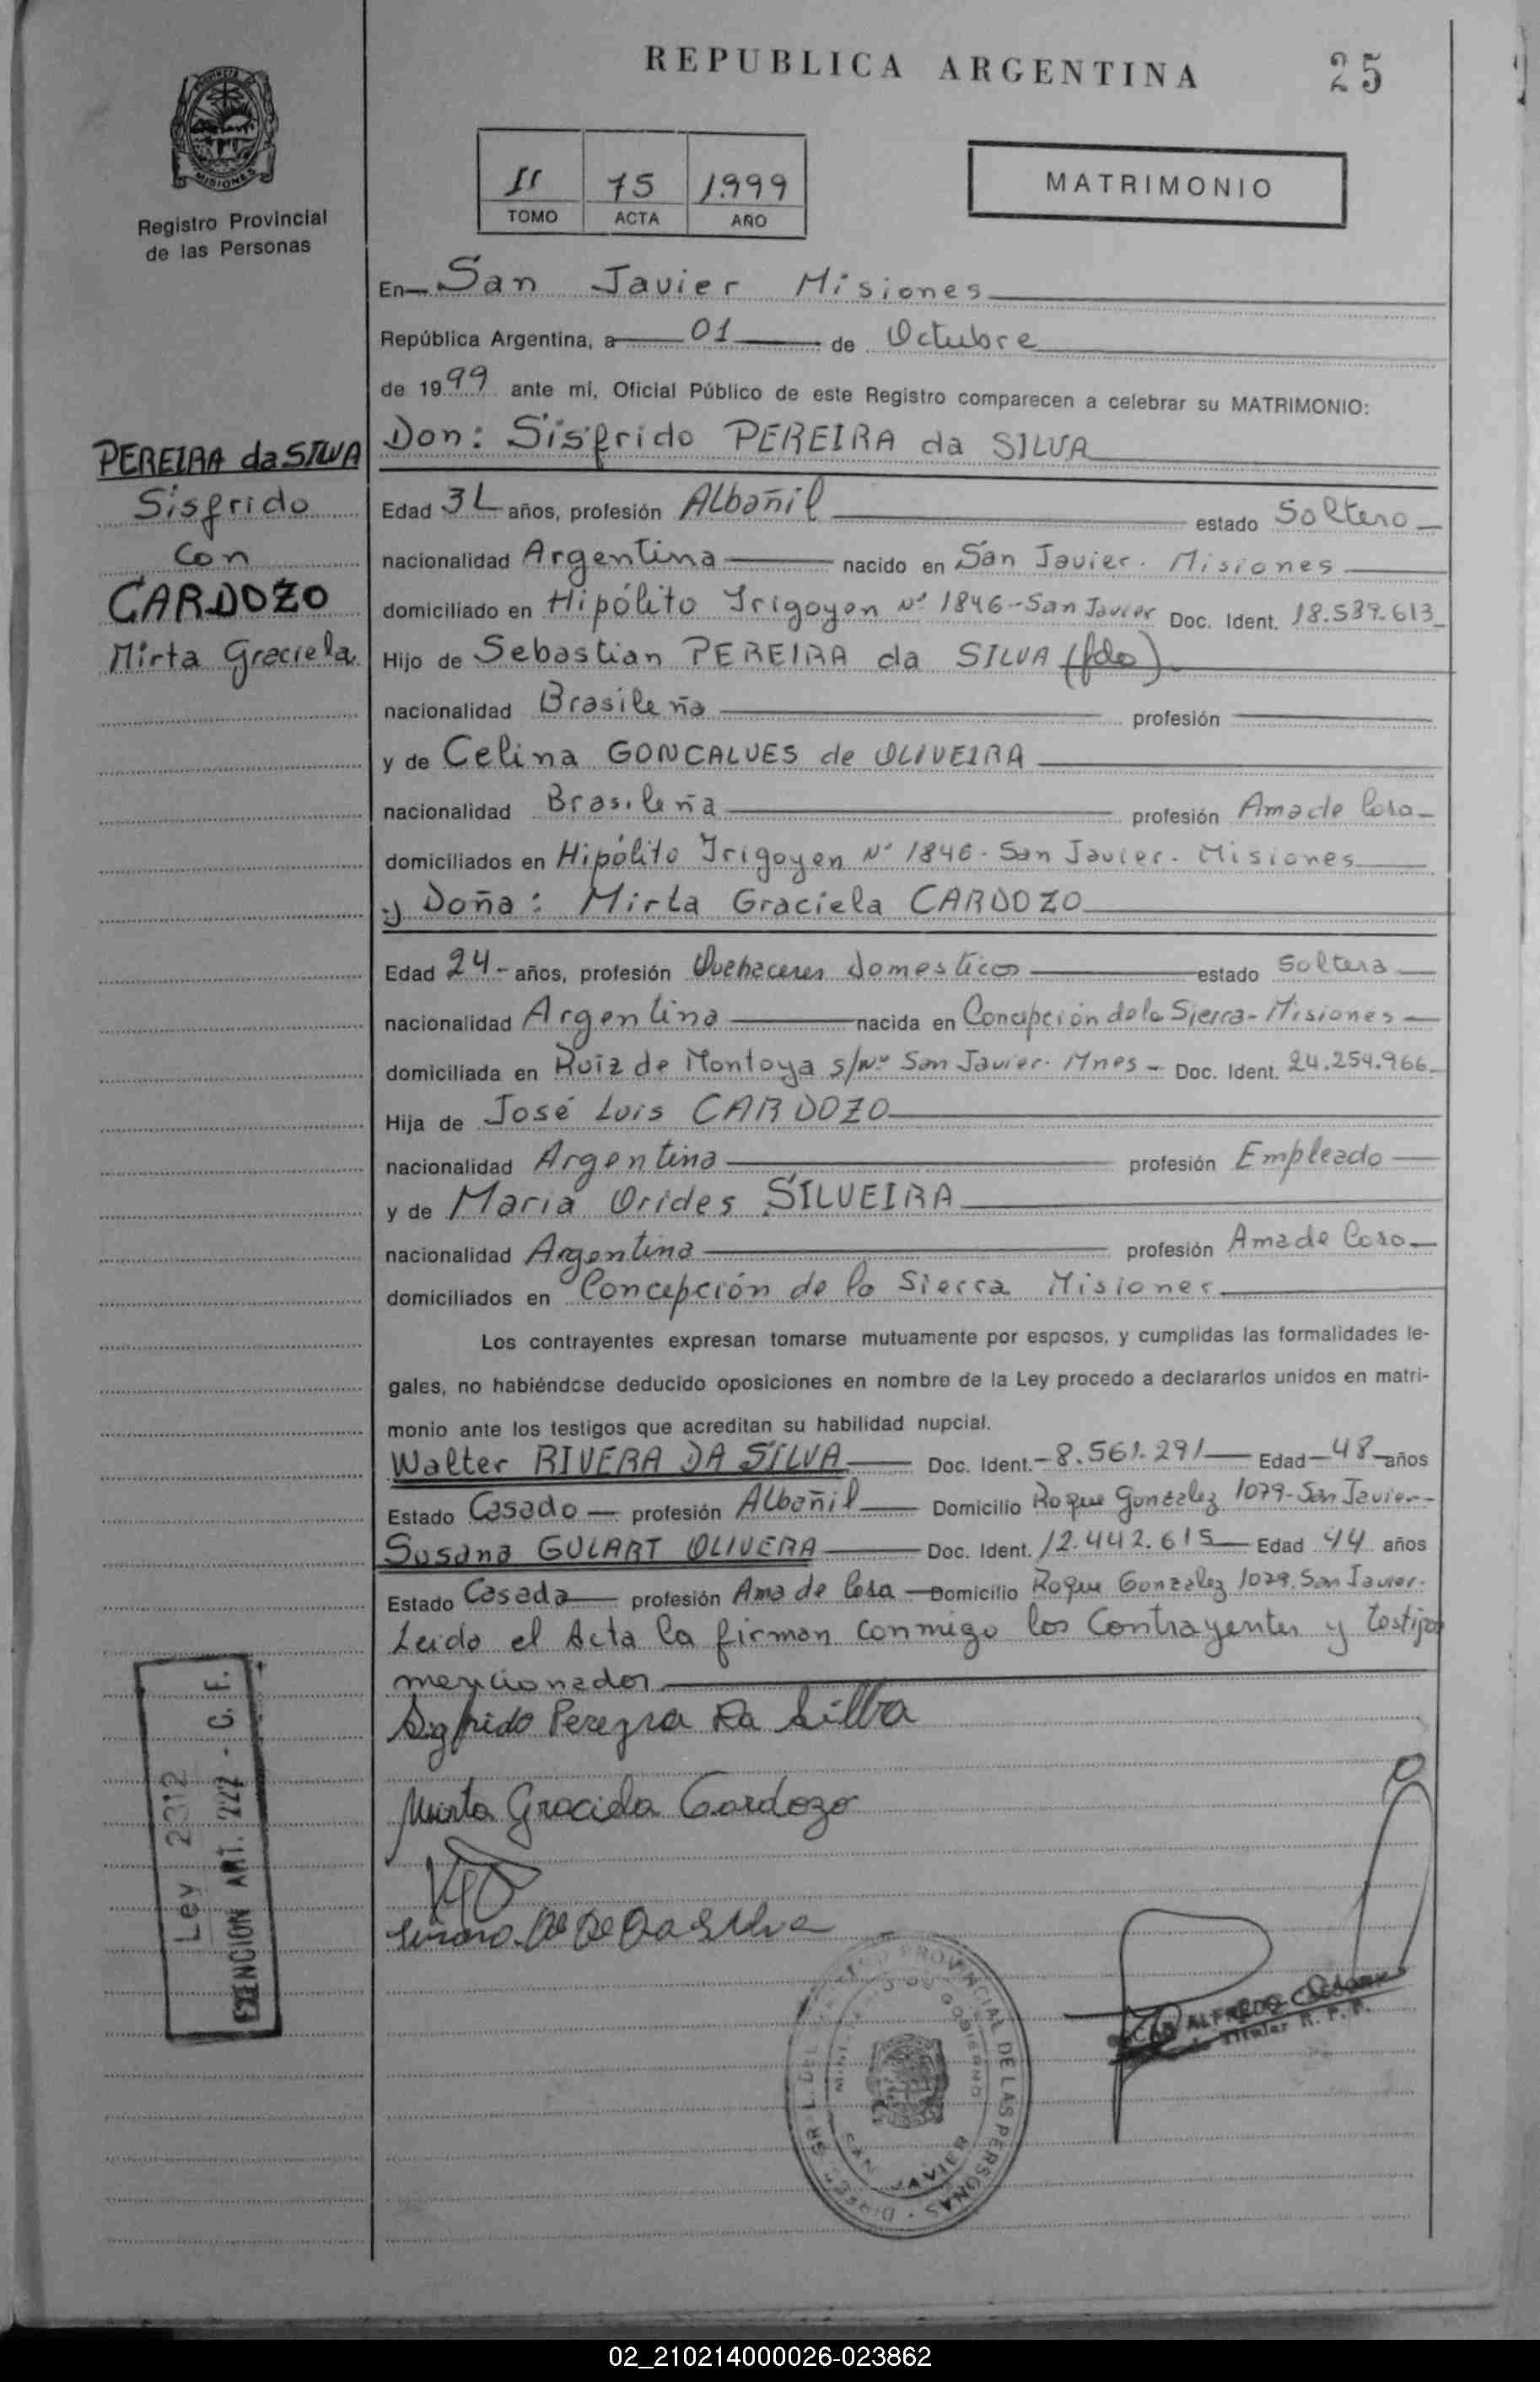 REPUBLICA ARGENTINA
25
MISIONES
Registro Provincial
de las Personas
II 75 1.999
TOMO ACTA AÑO
MATRIMONIO
En San Javier Misiones
República Argentina, a 01 de Octubre
de 1999 ante mi, Oficial Público de este Registro comparecen a celebrar su MATRIMONIO:
PEREIRA da SILVA
Sisfrido
Con
CARDOZO
Mirta Graciela
Don: Sisfrido PEREIRA da SILVA
Edad años, profesión Albañil estado Soltero
nacionalidad Argentina nacido en San Javier. Misiones
domiciliado en Hipólito Irigoyen Nº 1846-San Javier Doc. Ident. 18.539.613
Hijo de Sebastian PEREIRA da SILVA (fdo)
nacionalidad Brasileña profesión
y de Celina GONCALVES de OLIVEIRA
nacionalidad Brasileña profesión Ama de Casa
domiciliados en Hipólito Irigoyen Nº 1846. San Javier. Misiones
y Doña: Mirta Graciela CARDOZO
Edad 24 años, profesión Quehaceres Domesticos estado Soltera
nacionalidad Argentina nacida en Concepción de la Sierra-Misiones
domiciliada en Ruiz de Montoya s/Nº San Javier. Mnes - Doc. Ident. 24.254.966
Hija de José Luis CARDOZO
nacionalidad Argentina profesión Empleado
y de Maria Orides SILVEIRA
nacionalidad Argentina profesión Ama de Casa
domiciliados en Concepción de la Sierra Misiones
Los contrayentes expresan tomarse mutuamente por esposos, y cumplidas las formalidades le-
gales, no habiéndose deducido oposiciones en nombre de la Ley procedo a declararlos unidos en matri-
monio ante los testigos que acreditan su habilidad nupcial.
Walter RIVERA DA SILVA Doc. Ident. 8.561.291 Edad 48 años
Estado Casado profesión Albañil Domicilio Roque Gonzalez 1079-San Javier-
Susana GULART OLIVERA Doc. Ident. 12.442.615 Edad 44 años
Estado Casada profesión Ama de Casa Domicilio Roque Gonzalez 1079. San Javier.
Leida el Acta la firman conmigo los Contrayentes y testigos
mencionados
Sigfrido Pereyra Da Silba
Mirta Graciela Cardozo
Ley 2312
EXENCION ART. 222 - C. F.
PROVINCIAL DE LAS PERSONAS
GOBIERNO
SAN JAVIER
ALFREDO
Titular R. P. P.
02_210214000026-023862